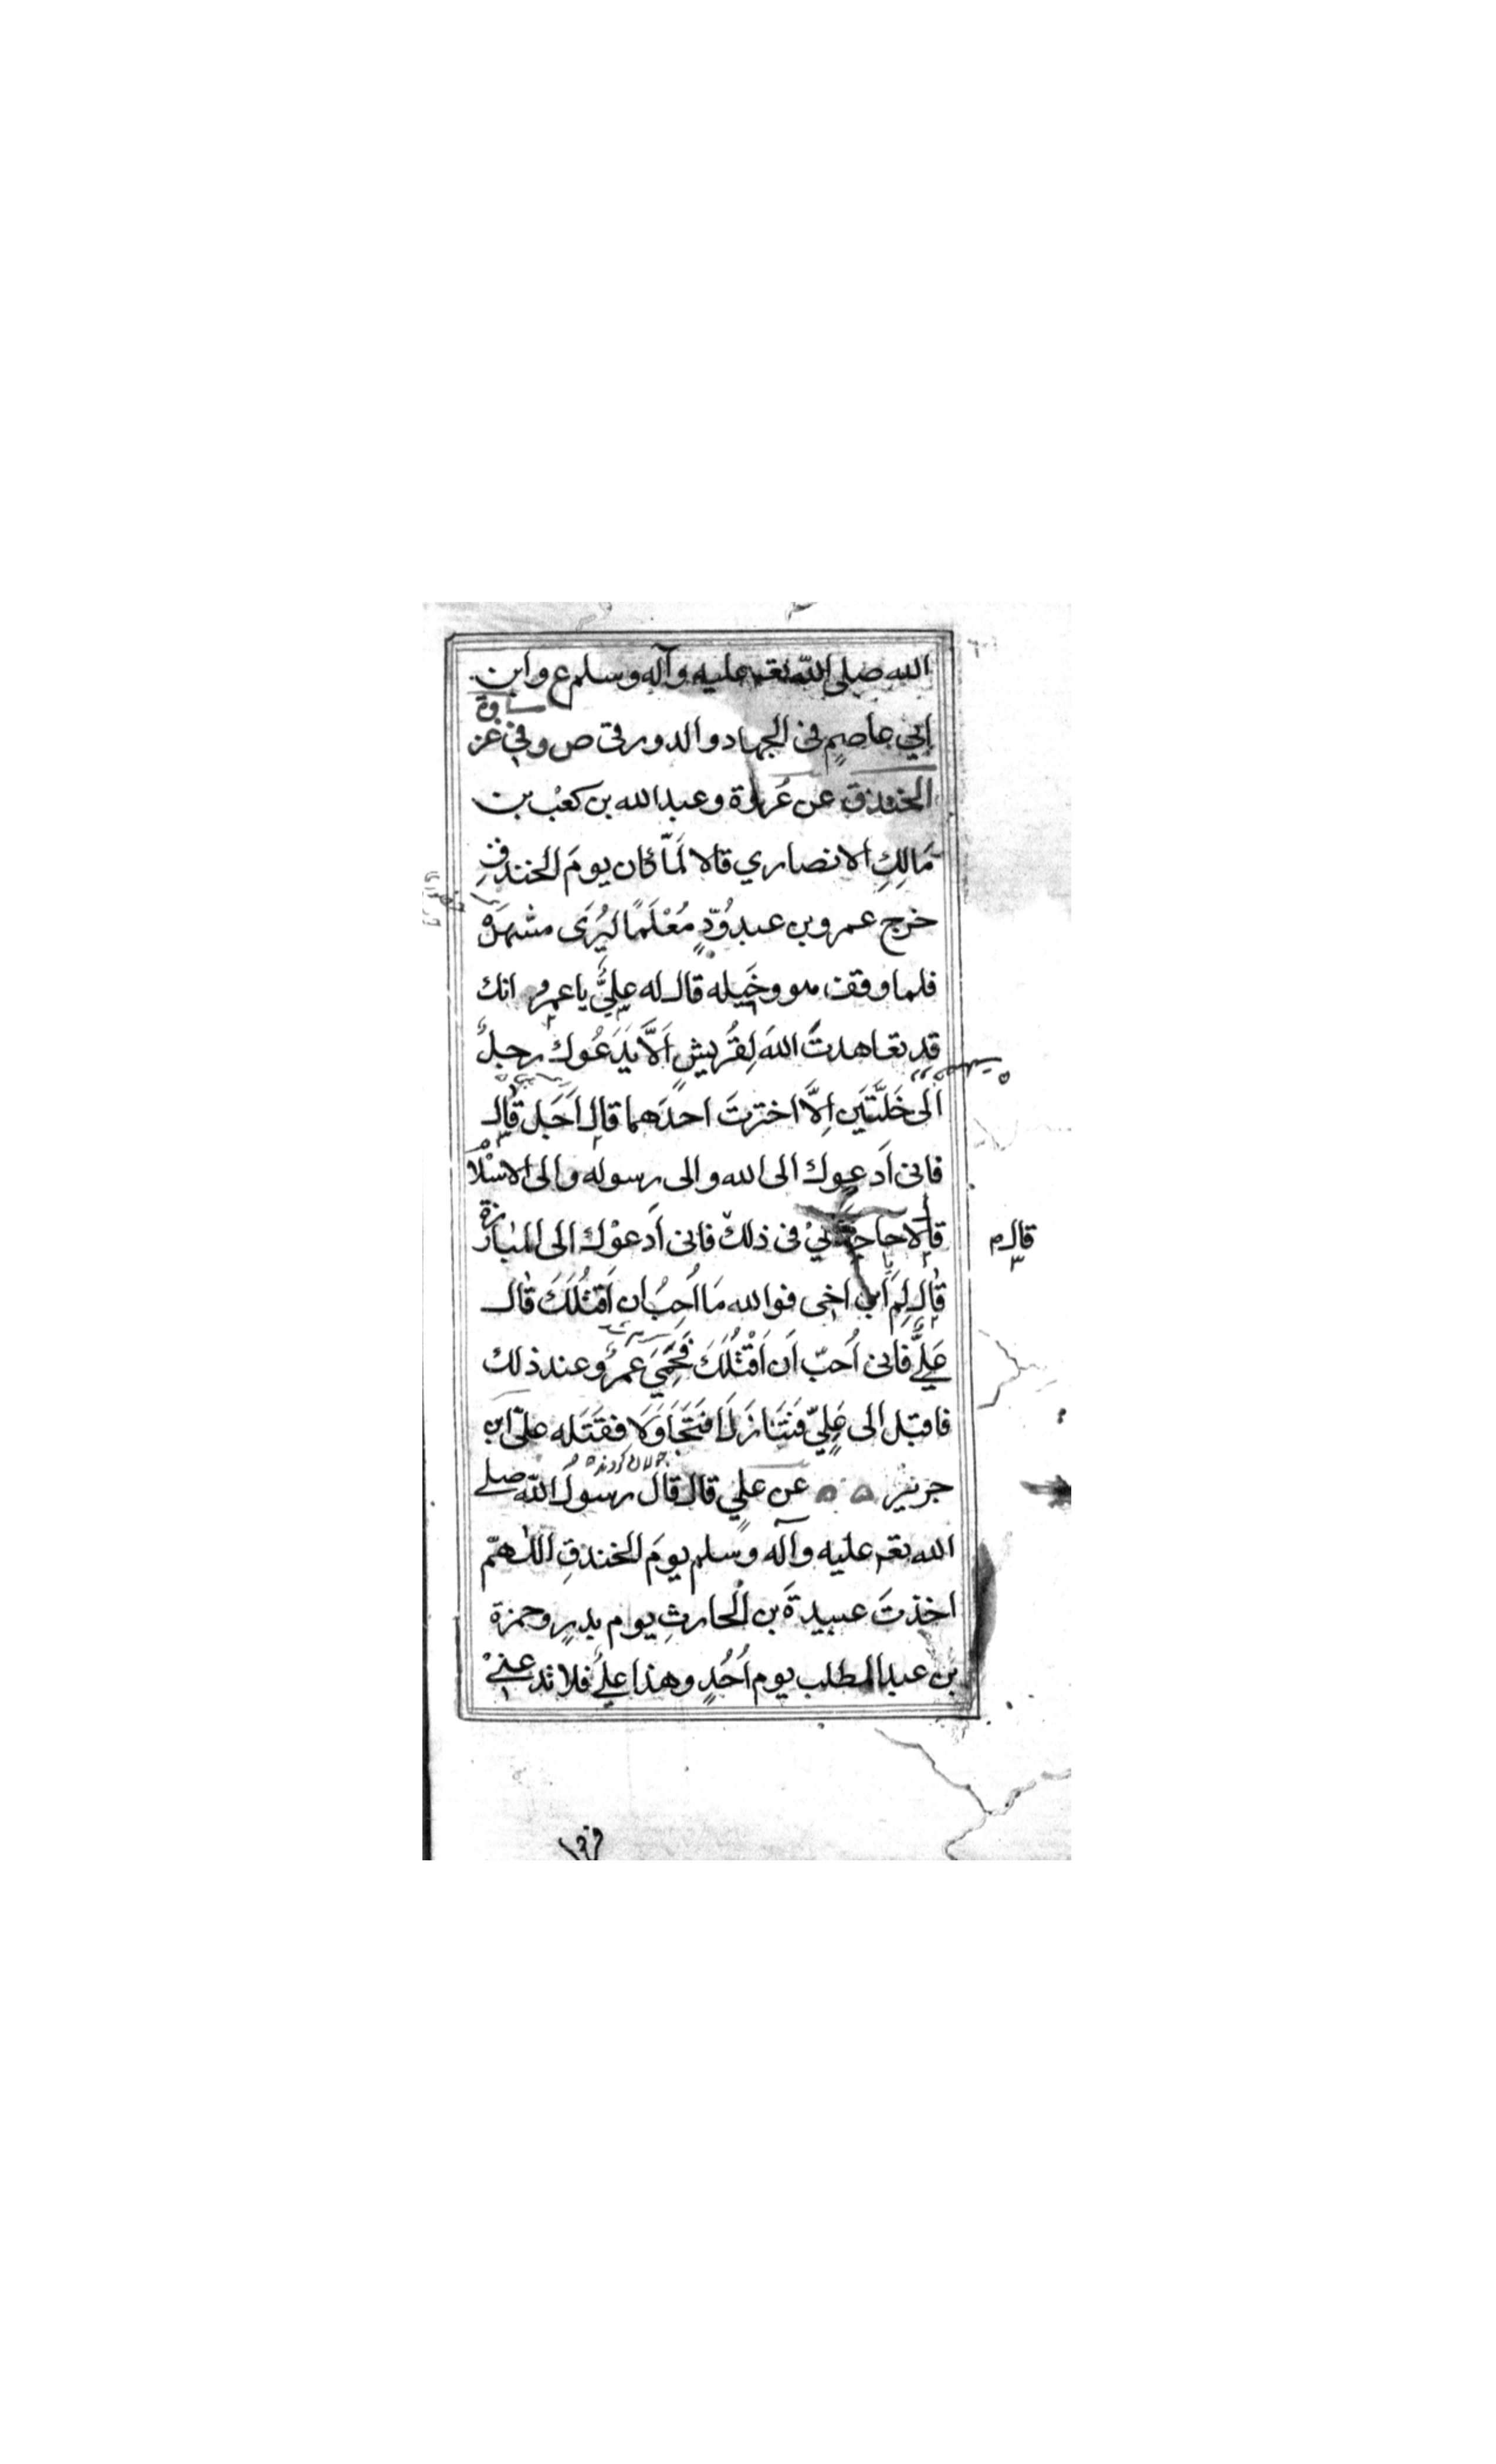 الله صلى الله تعـ عليه وآله وسلم ع وابن
ابي عاصم في الجهاد والدورقى ص وفي غزوة
الخندق عن عُروة وعبد الله بن كعْب بن
مَالِكِ الانصاري قالا لَمّا كان يومَ الخندقِ
خرج عمرو بن عبد وُدٍّ مُعْلَمًا ليُرَى مشهدَه
فلما وقف هو وخَيله قال له عليٌّ يا عمرو انك
قد تعاهدتَ اللهَ لِقُرَيشٍ اَلَّا يَدَعُوكَ رجلٌ
الى خَلَّتَينِ اِلَّا اخترتَ احدَهما قال اَجَل قال
فانى اَدعوك الى الله والى رسوله والى الاسْلام
قال لا حاجةَ لِيْ فى ذلك فانى اَدعوْك الى المبارزة
قال م
قال لِمَ يا ابن اخى فوالله مَا اُحِبُ ان اَقتُلَكَ قال
عَلِيٌّ فانى اُحبّ اَن اَقْتُلَكَ فَحَمِيَ عَمروٌ عند ذلك
فاقبل الى عَلِيٍّ فَتَنَازَلَا فَتَجَاوَلَا فقَتَله علىّ ابن
جولان كردند
جرير عن علي قال قال رسُولُ اللّه صلى
الله تعـ عليه وآله وسلم يومَ الخندقِ اللّٰهمّ
اخذتَ عبيدةَ بن الْحارثِ يوم بدرٍ وحمزة
بن عبد المطلب يوم اُحُدٍ وهذا عليٌ فلا تدعنىْ